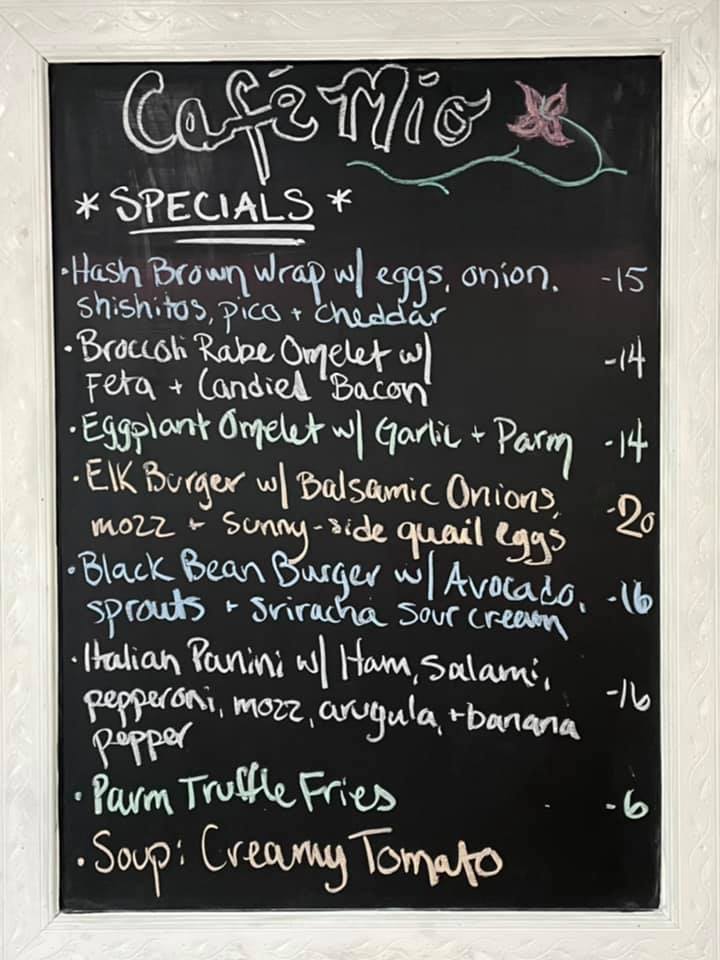 Café Mio
* SPECIALS *
•Hash Brown Wrap w/ eggs, onion, -15
shishitos, pico + cheddar
•Broccoli Rabe Omelet w/ -14
Feta + Candied Bacon
•Eggplant Omelet w/ Garlic + Parm -14
•Elk Burger w/ Balsamic Onions, -20
mozz + sunny-side quail eggs
•Black Bean Burger w/ Avocado, -16
sprouts + sriracha sour cream
•Italian Panini w/ Ham, salami, -16
pepperoni, mozz, arugula, + banana
pepper
•Parm Truffle Fries -6
•Soup: Creamy Tomato